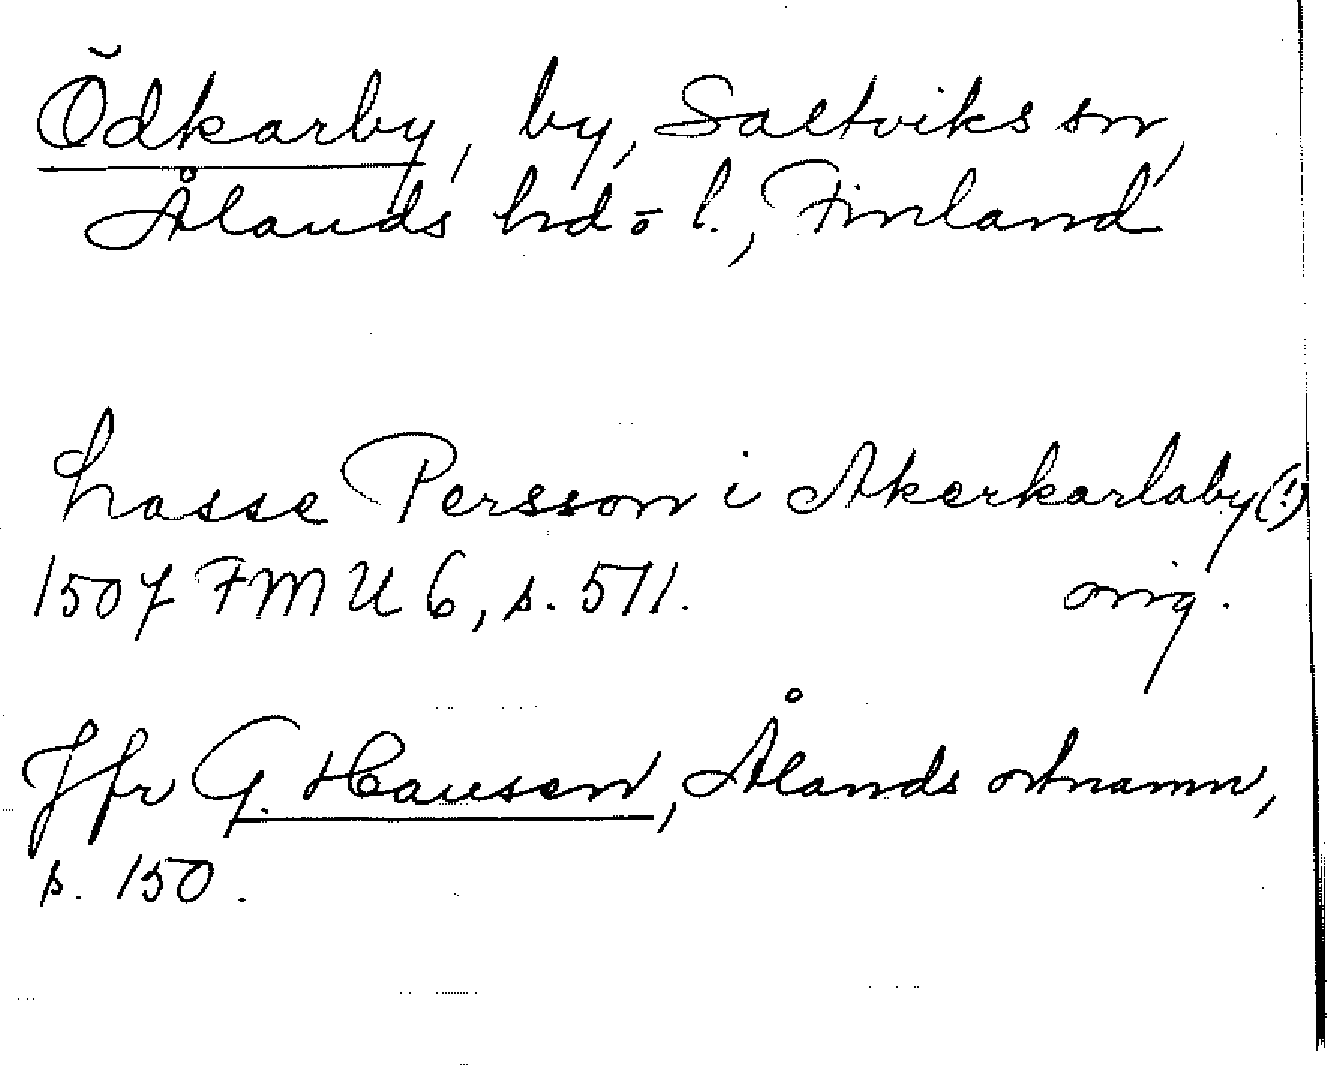 Ödkarby, by, Saltviks sn,
Ålands hd o l., Finland
Lasse Persson i Akerkarlaby (!)
1507 FMU 6, s. 511. orig.
Jfr G. Hausen, Ålands ortnamn,
s. 150.